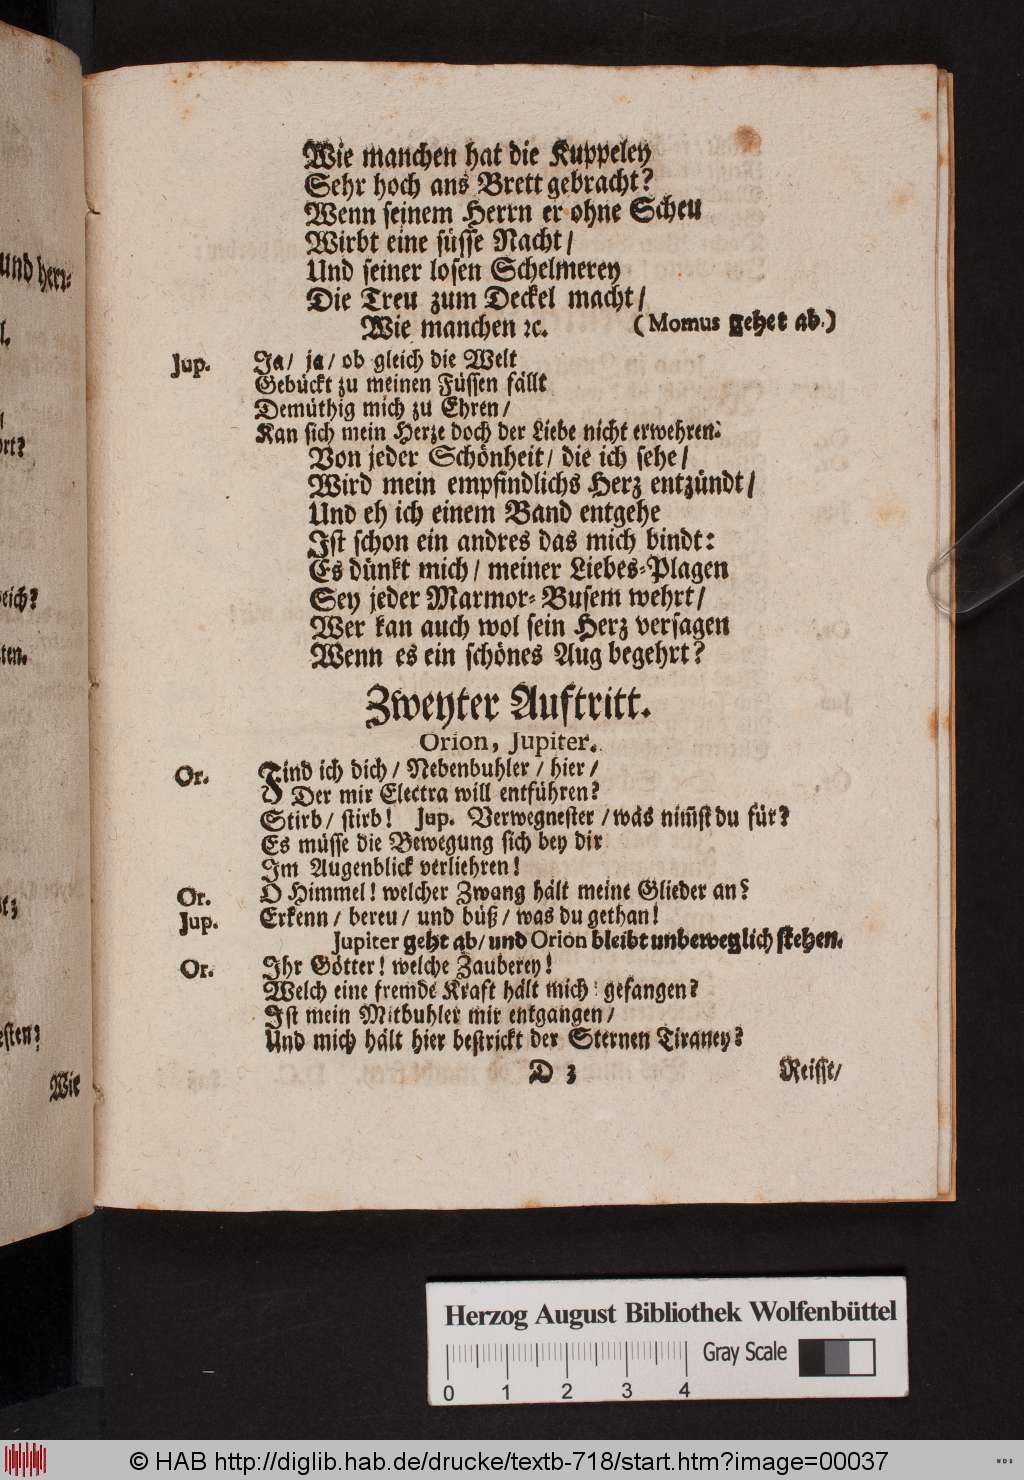 Wie manchen hat die Kuppeley
Sehr hoch ans Brett gebracht?
Wenn seinem Herrn er ohne Scheu
Wirbt eine süsse Nacht/
Und seiner losen Schelmerey
Die Treu zum Deckel macht/
Wie manchen ꝛc. (Momus gehet ab.)
Jup. Ja/ ja/ ob gleich die Welt
Gebückt zu meinen Füssen fällt
Demüthig mich zu Ehren/
Kan sich mein Herze doch der Liebe nicht erwehren:
Von jeder Schönheit/ die ich sehe/
Wird mein empfindlichs Herz entzündt/
Und eh ich einem Band entgehe
Ist schon ein andres das mich bindt:
Es dünkt mich/ meiner Liebes-Plagen
Sey jeder Marmor-Busem wehrt/
Wer kan auch wol sein Herz versagen
Wenn es ein schönes Aug begehrt?
Zweyter Auftritt.
Orion, Jupiter.
Or. Find ich dich/ Nebenbuhler/ hier/
Der mir Electra will entführen?
Stirb/ stirb! Jup. Verwegnester/ was nim̃st du für?
Es müsse die Bewegung sich bey dir
Im Augenblick verliehren!
Or. O Himmel! welcher Zwang hält meine Glieder an?
Jup. Erkenn/ bereu/ und büß/ was du gethan!
Jupiter geht ab/ und Orion bleibt unbeweglich stehen.
Or. Ihr Götter! welche Zauberey!
Welch eine fremde Kraft hält mich gefangen?
Ist mein Mitbuhler mir entgangen/
Und mich hält hier bestrickt der Sternen Tiraney?
D 3 Reisse/
und herr-
l.
ort?
eich?
ten.
esten?
Wie
Herzog August Bibliothek Wolfenbüttel
Gray Scale
0 1 2 3 4
© HAB http://diglib.hab.de/drucke/textb-718/start.htm?image=00037